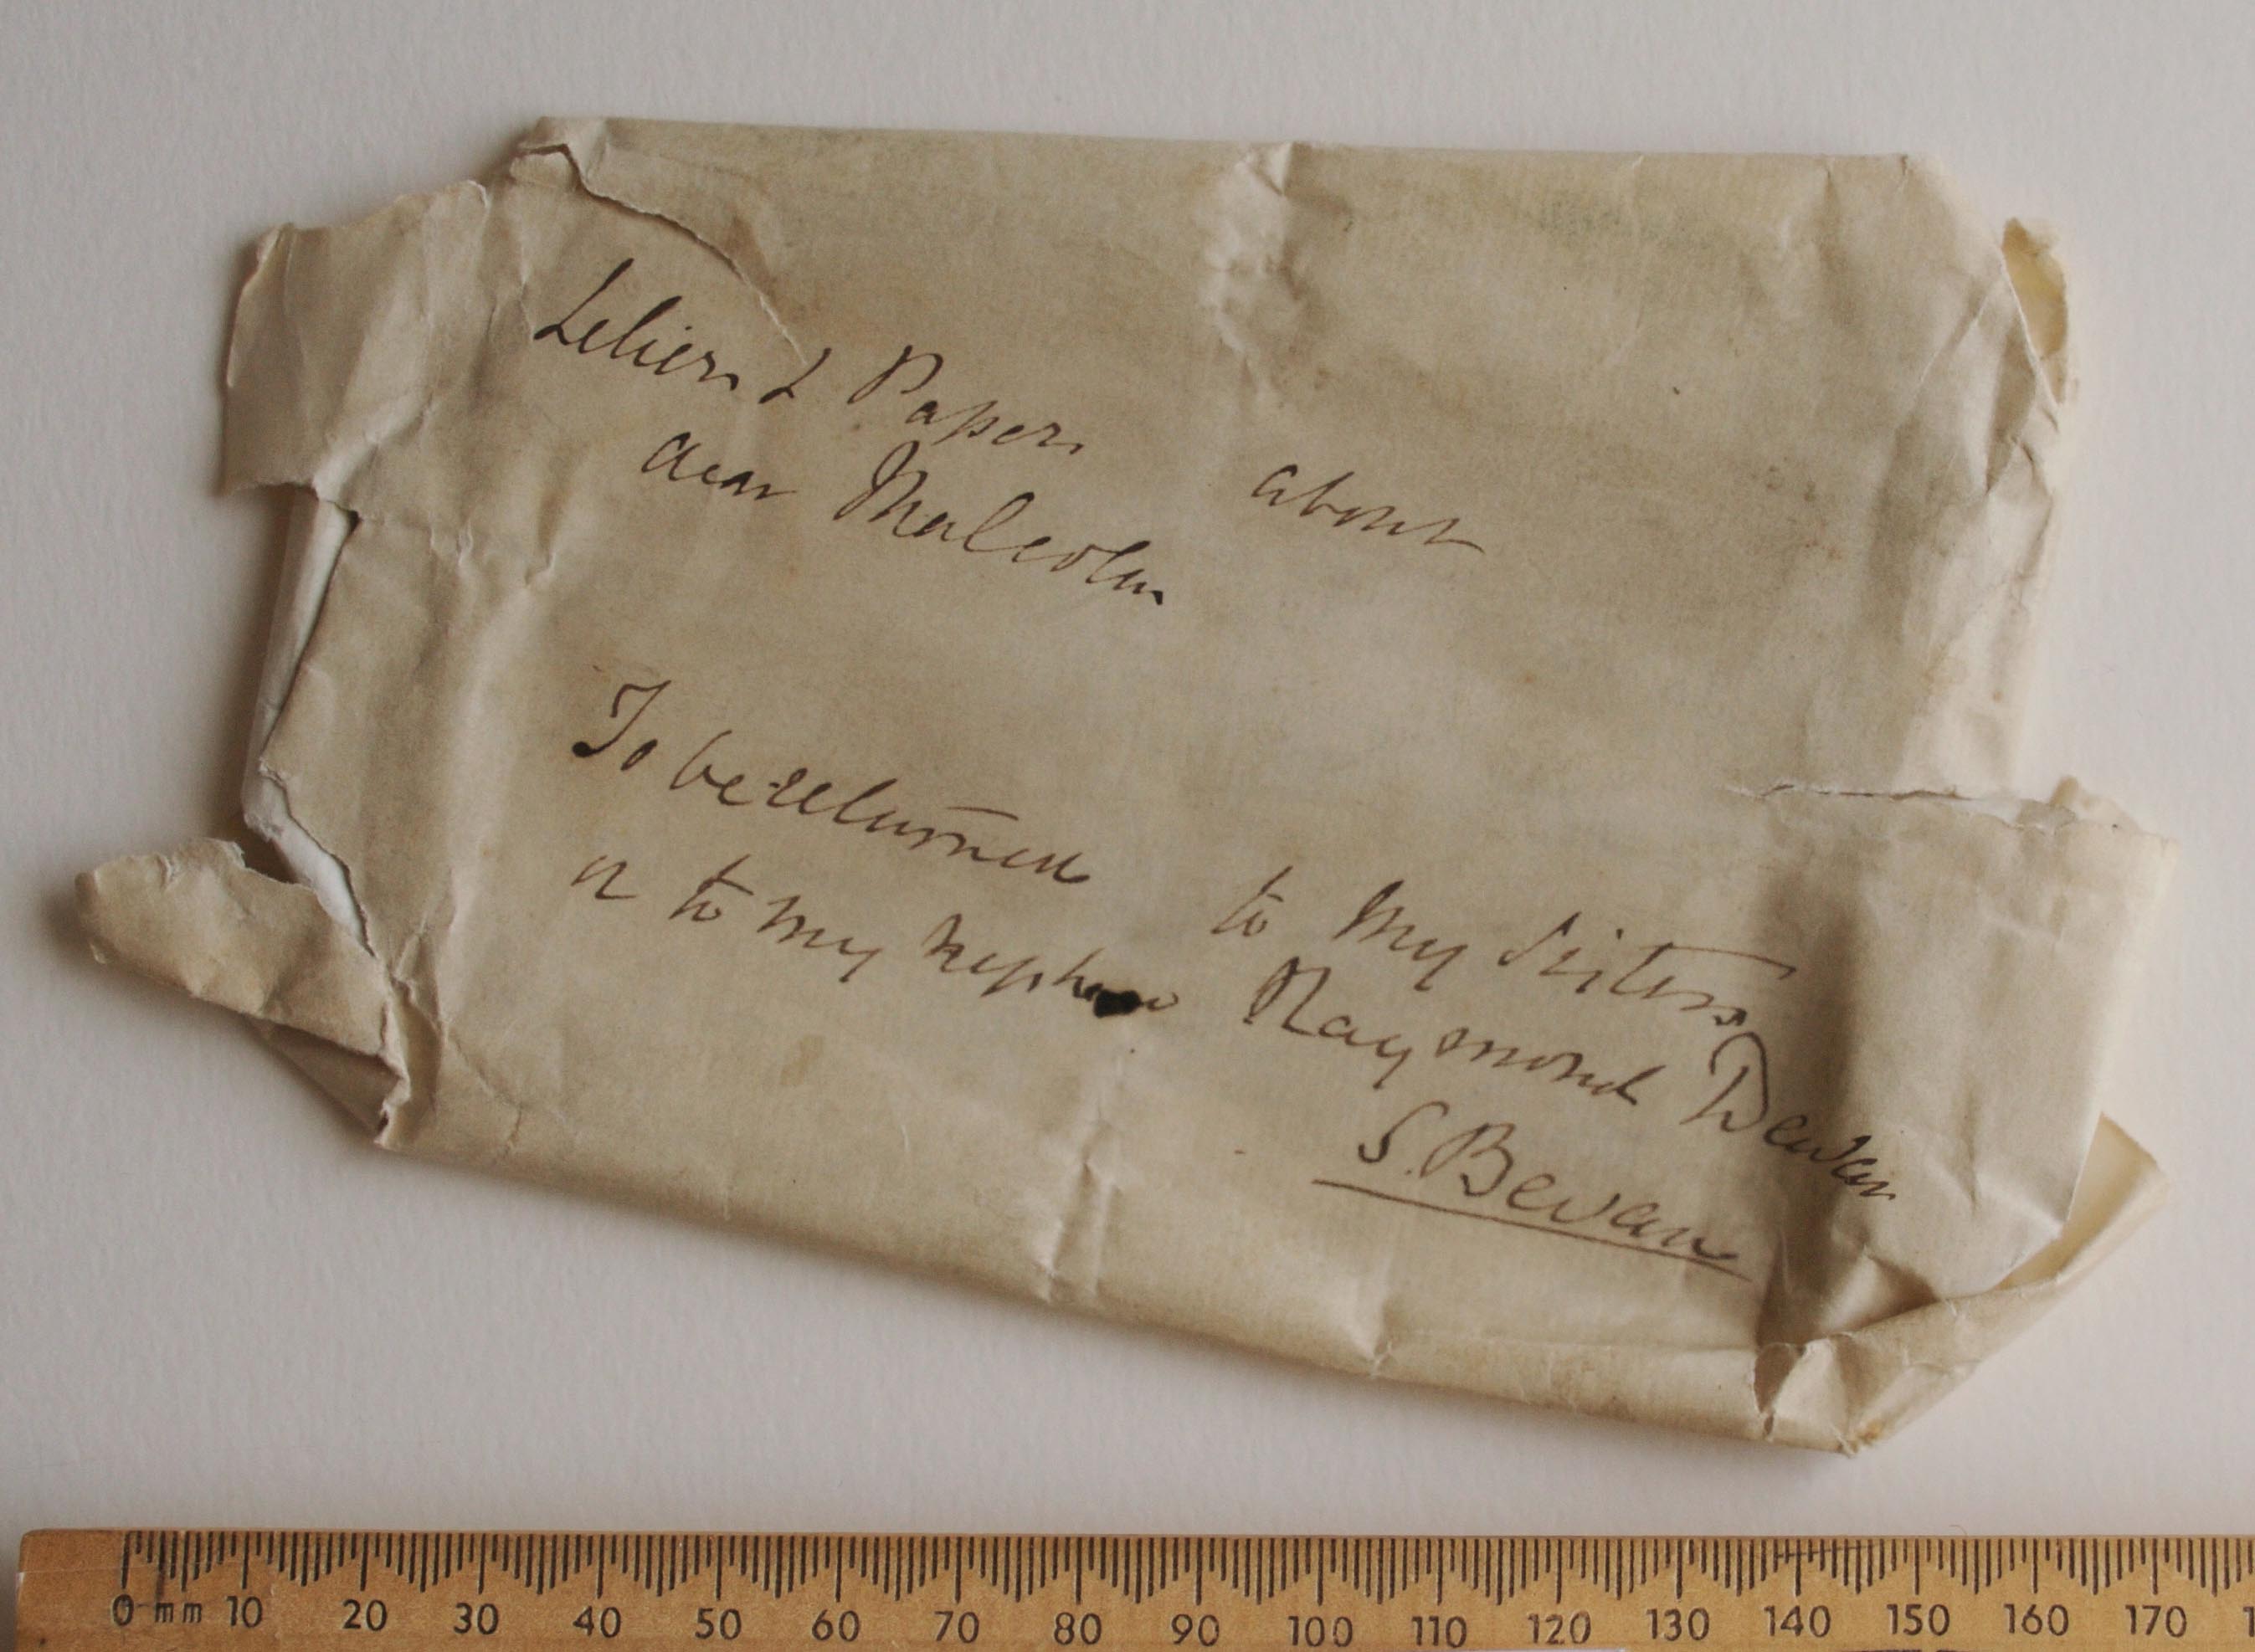 Letters & Papers about
dear Malcolm
To be returned to my Sisters
or to my nephew Raymond Bevan
S. Bevan
0 mm 10 20 30 40 50 60 70 80 90 100 110 120 130 140 150 160 170